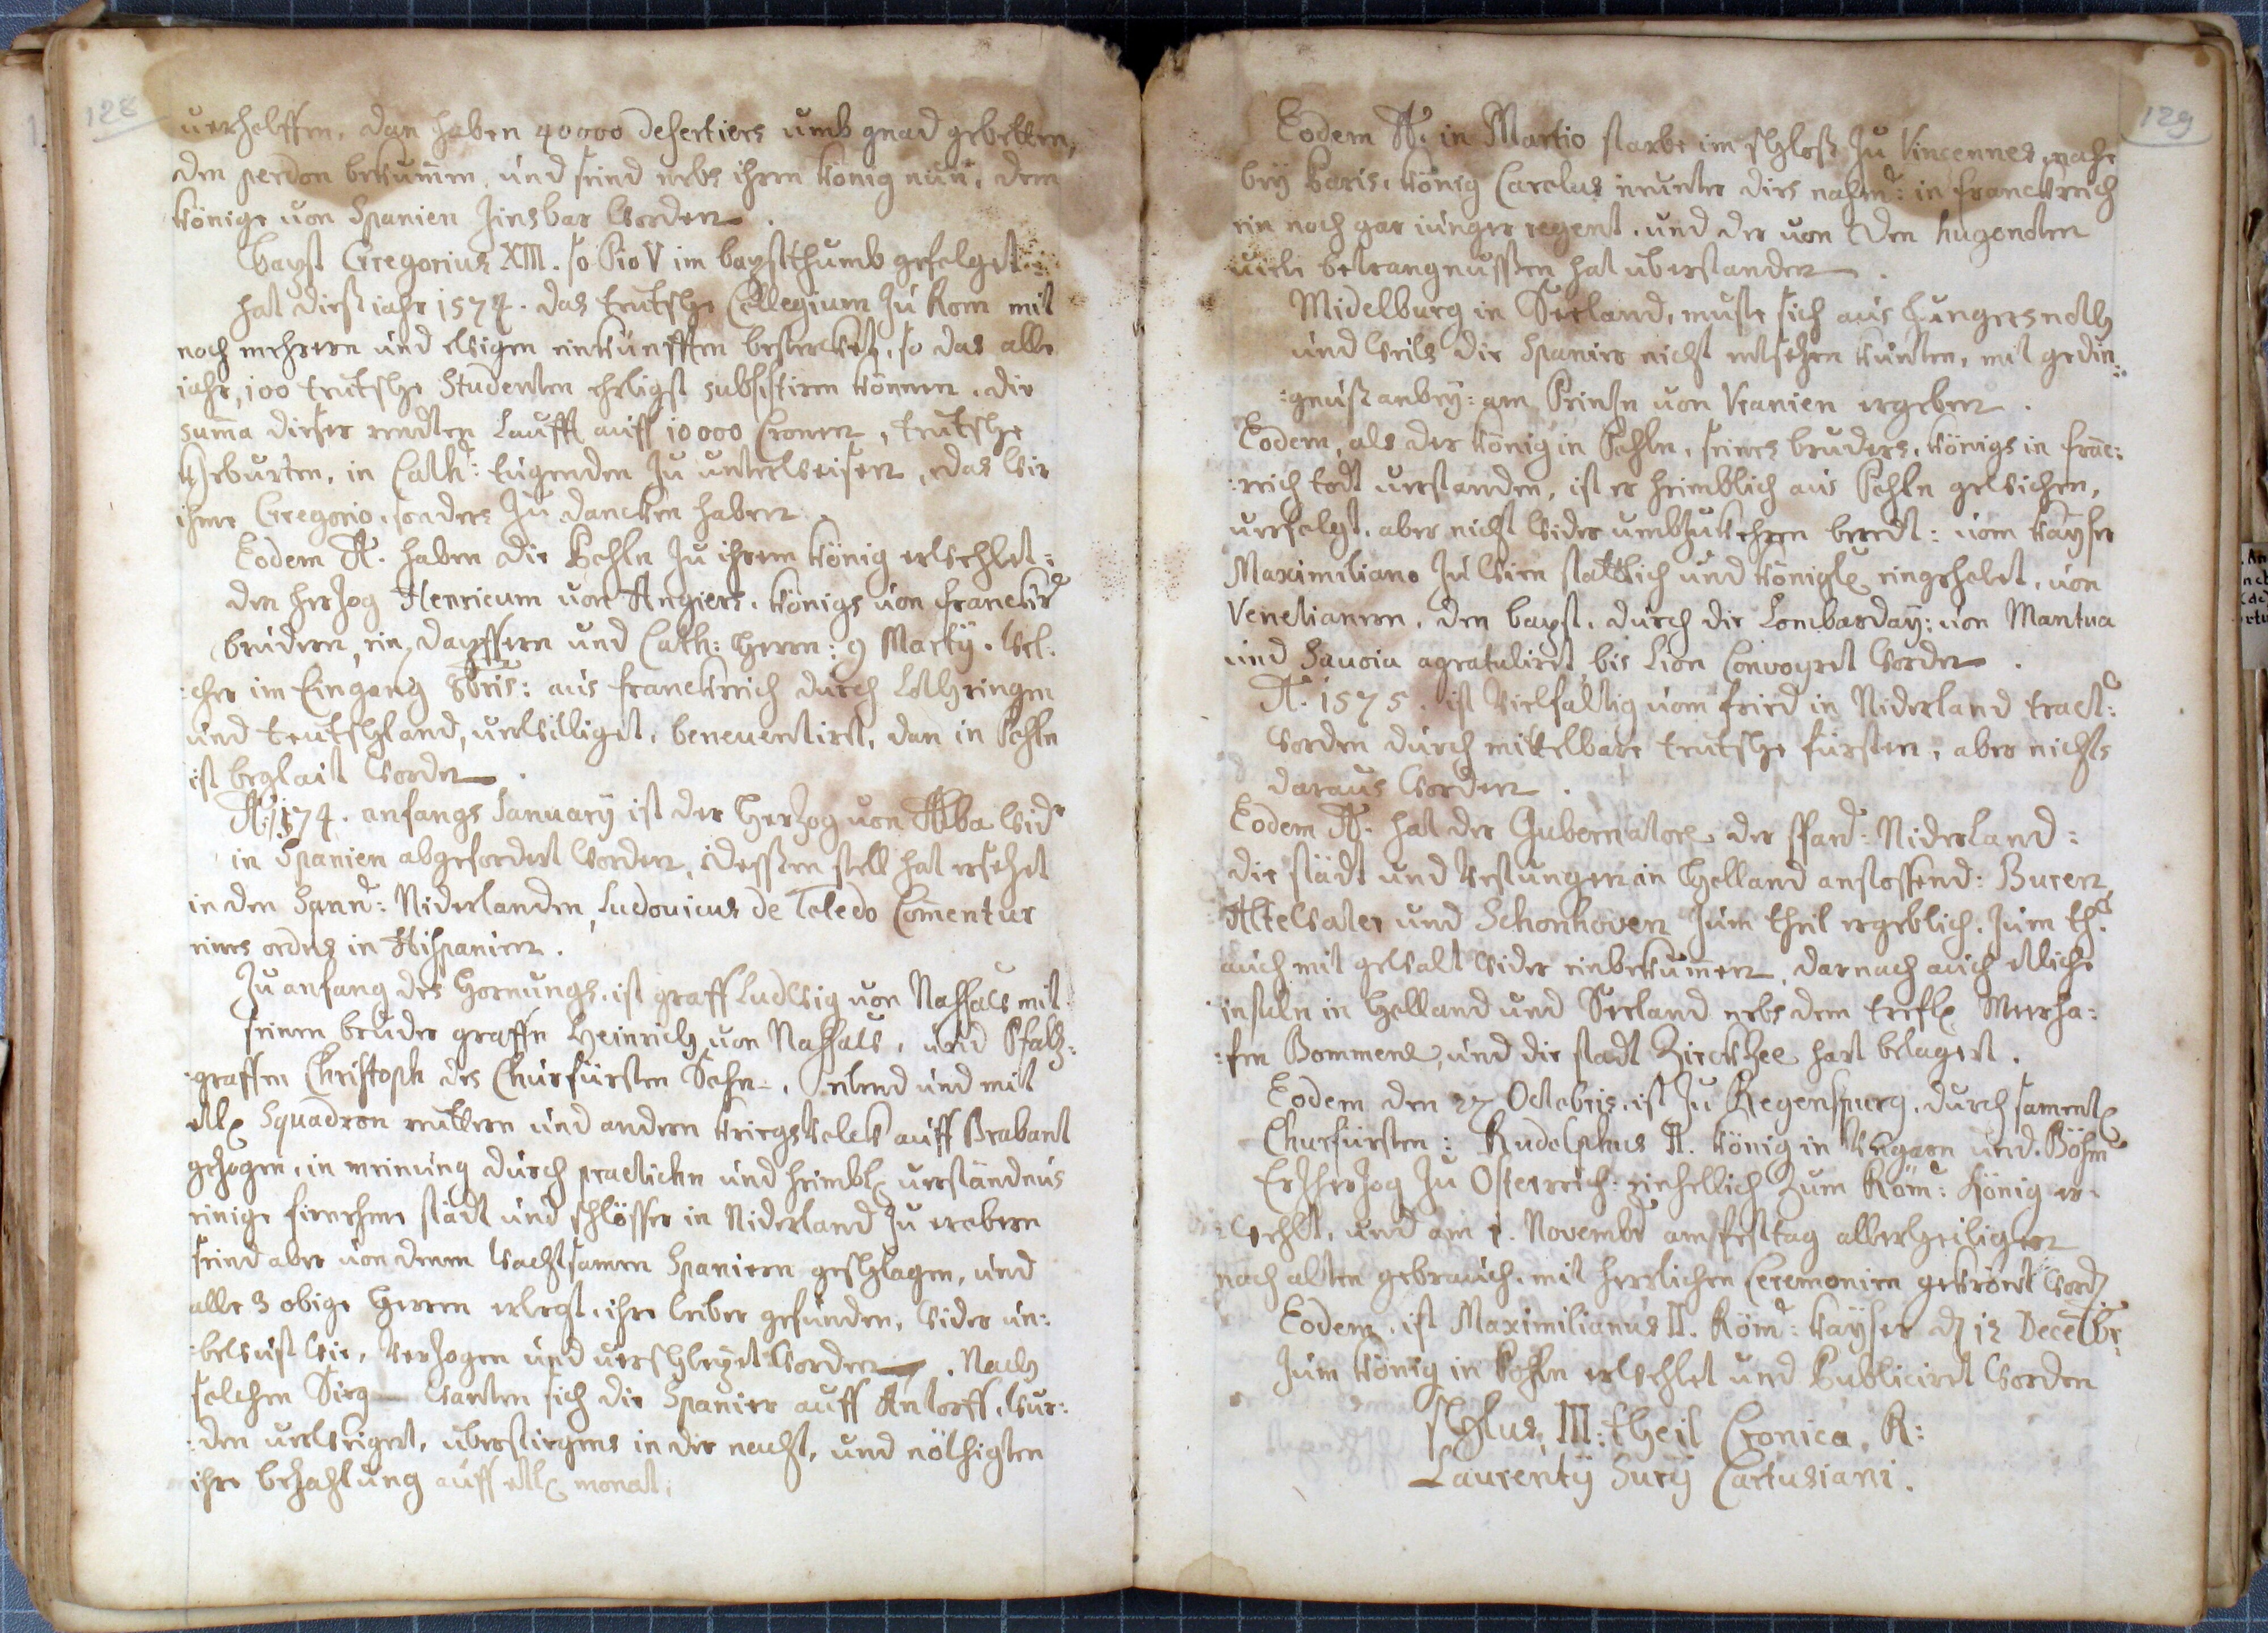 128
verhelffen, dan haben 40000 desertiers umb gnad gebetten,
den perdon bekummen, und seind nebs ihren König nun, dem
Könige von Spanien zinsbar worden.
Bapst Gregorius XIII. so Pio V im bapstthumb gefolget
hat dieß iahr 1574. das teutsche Collegium zu Rom mit
noch mehrern und ewigen einkunfften besterckt, so das alle
iahr, 100 teutsche Studenten ehrligst subsistiren können. die
summa dieser rendten laufft auff 10000 Cronen, teutsche
geburten, in Cath: tugenden zu unterweisen, das wir
ihme Gregorio, sonders zu dancken haben.
Eodem A. haben die Pohln zu ihrem König erwehlet:
den herzog Henricum von Angiers, Königs von franckr
brudern, ein dapffern und Cath: Herrn: 9 Martÿ. wel:
:cher im Eingang aus franckreich durch Lothringen
und teutschland, verwilliget, beneventirt, dan in Pohln
ist beglait worden.
A. 1574. anfangs January ist der Herzog von Alba wider
in Spanien abgefordert worden, dessen stell hat ersetzt
in den Spand: Niderlanden, Ludovicus de Toledo Comentur
eines ordens in Hispanien.
Zu anfang des Hornungs, ist graff Ludwig von Nassaw mit
seinem bruder graffn Heinrich von Nassaw, und Pfaltz:
:graffen Christoph des Churfürsten Sohn, und mit
etl Squadron reuttern und andern kriegsvolck auff Brabant
gezogen, in meinung durch practickn und heimbl verständnus
einige fürnehme städt und schlösser in Niderland zu erobern
seind aber von denen wachtsamen Spaniern geschlagen, und
alle 3 obige Herren erlegt, ihre leiber gefunden, wider un:
:bewust wie, verzogen und verschleyet worden. Nach
solchen Sieg wanten sich die Spanier auff Antorff, wur:
:den verweigert, uberstiegens in der nacht, und nöthigten
ihre bezahlung auff etl monat.
129
Eodem A. in Martio starbe im schloß zu Vincennes, nahe
beÿ Paris, König Carolus neunte dies nahm: in franckreich
ein noch gar iunger regent, und der von den hugenoten
viele betrangnussen hat uberstanden.
Midelburg in Seeland, muste sich aus hungersnoth
und weils die Spanier nicht entsetzen kunten, mit gedin:
:gnuß anbeÿ: am Prinsn von Vranien ergeben.
Eodem, als der König in Pohln, seines bruders, Königs in franc:
:reich todt verstanden, ist er heimblich aus Pohln gewichen,
verfolgt, aber nicht wider umbzukehren beredt: vom Kayser
Maximiliano zu Wien stattlich und Königl eingeholet, von
Venetianern, den bapst, durch die Lombardaÿ: von Mantua
und Savoia agratulirt, bis Lion Convoyret worden.
A. 1575. ist vielfaltig vom fried in Niderland tract:
worden durch mittelbare teutsche fürsten, aber nichts
daraus worden.
Eodem A. hat der Gubernator der Niderland:
die städt und Vestungen in Holland anstossend: Buren
Altewater und Schonhoven zum theil ergeblich, zum th.
auch mit gewalt wider einbekummen, darnach auch etliche
insuln in Holland und Seeland nebs dem trefl Meerha:
:fen Bommene, und die stadt Zirckzee hart belagert.
Eodem den 27 Octobris, ist zu Regenspurg, durch sament
Churfürsten: Rudolphus II. König in Vngarn und Böhm
Erzherzog zu Osterreich: einhellich zum Röm: König er:
:wehlt, und am 1. Novemb am festtag allerheiligen
nach alten gebrauch, mit herrlichen Ceremonien gekrönt word
Eodem, ist Maximilianus II. Röm: Kayser d 12 Decēbr.
zum König in Pohln erwehlet und Publicirt worden
schlus, III: theil Cronica, R:
Laurentÿ Surÿ Cartusiani.